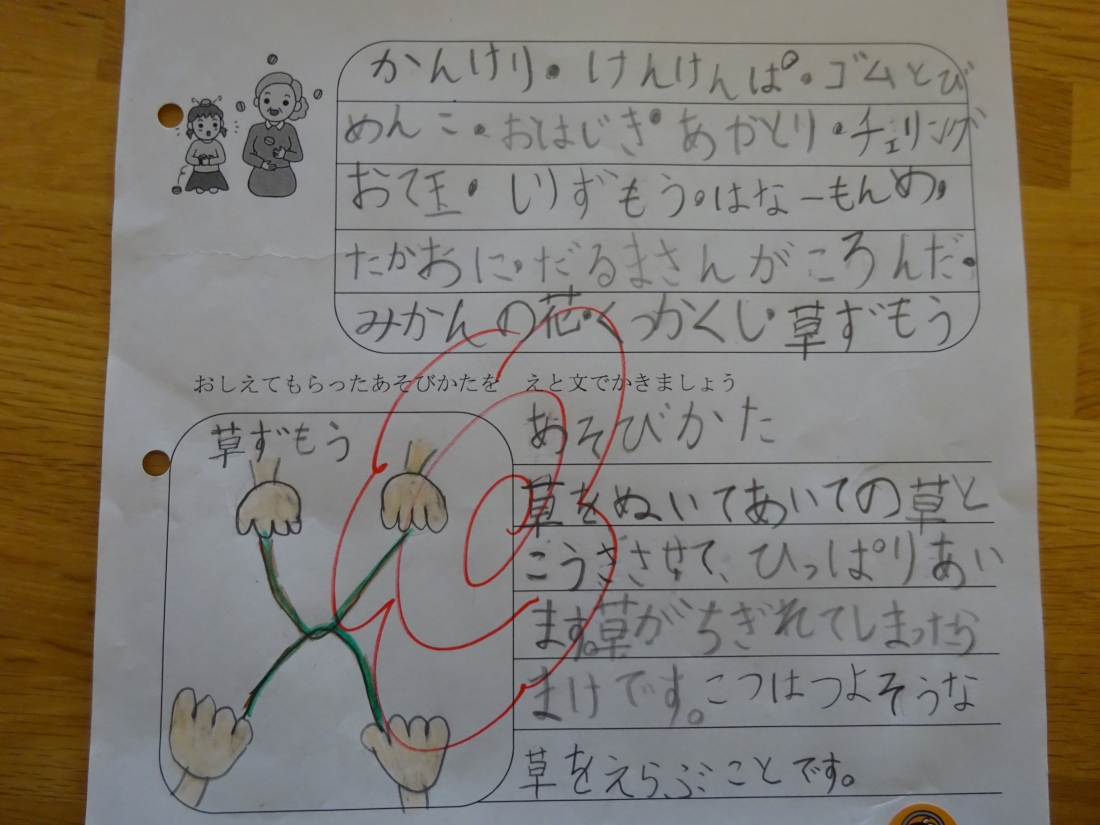 かんけり・けんけんぱ・ゴムとび
めんこ・おはじき・あやとり・チェリング
お手玉・しりずもう・はなーもんめ・
たかおに・だるまさんがころんだ・
みかんの花・くつかくし・草ずもう
おしえてもらったあそびかたを えと文でかきましょう
草ずもう
あそびかた
草をぬいてあいての草と
こうささせて、ひっぱりあい
ます。草がちぎれてしまったら
まけです。こつはつよそうな
草をえらぶことです。